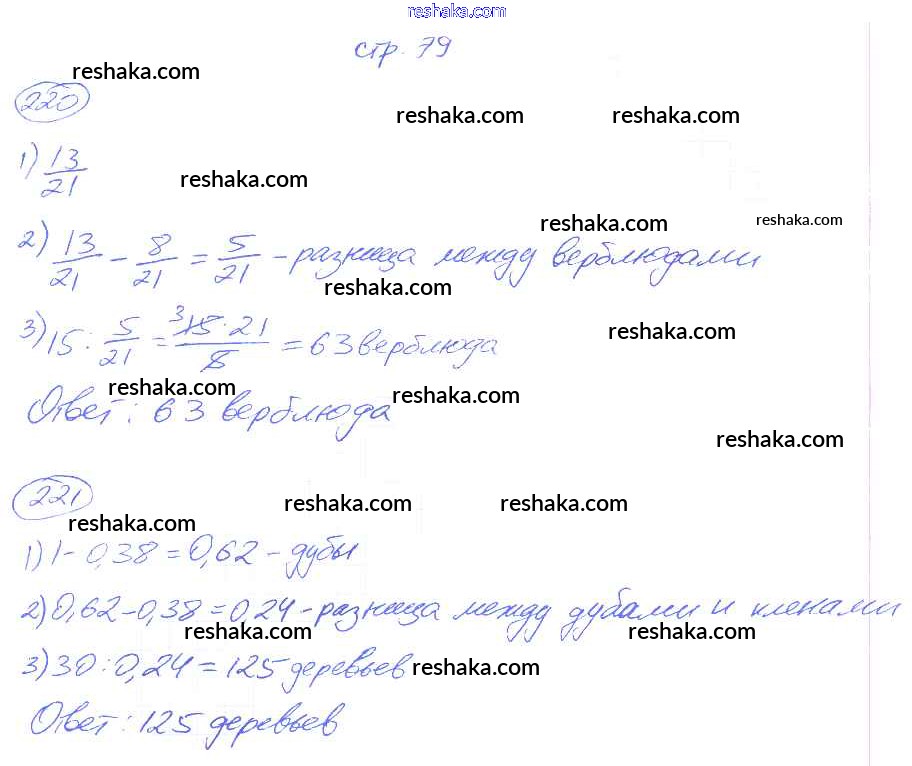 reshaka.com
стр. 79
reshaka.com
220
reshaka.com reshaka.com
1) 13/21
reshaka.com
reshaka.com reshaka.com
2) 13/21 - 8/21 = 5/21 - разница между верблюдами
reshaka.com
3) 15 : 5/21 = 3 15·21/5 = 63 верблюда
reshaka.com
reshaka.com reshaka.com
Ответ: 63 верблюда
reshaka.com
221
reshaka.com reshaka.com
reshaka.com
1) 1 - 0,38 = 0,62 - дубы
2) 0,62 - 0,38 = 0,24 - разница между дубами и кленами
reshaka.com reshaka.com
3) 30 : 0,24 = 125 деревьев
reshaka.com
Ответ: 125 деревьев